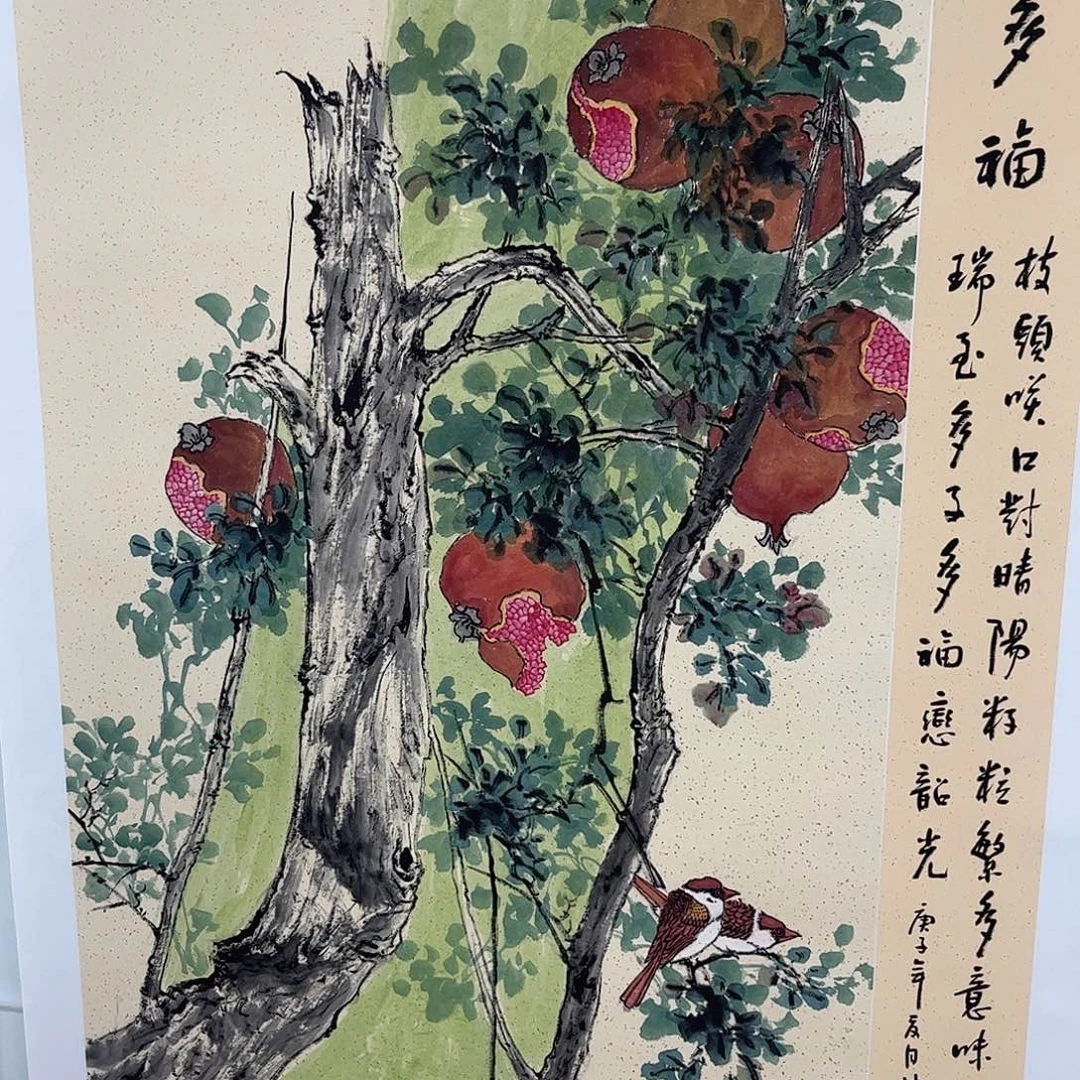 多福
枝頭咲口對晴陽籽粒繁多意味
瑞至多子多福戀韶光
庚子年夏月